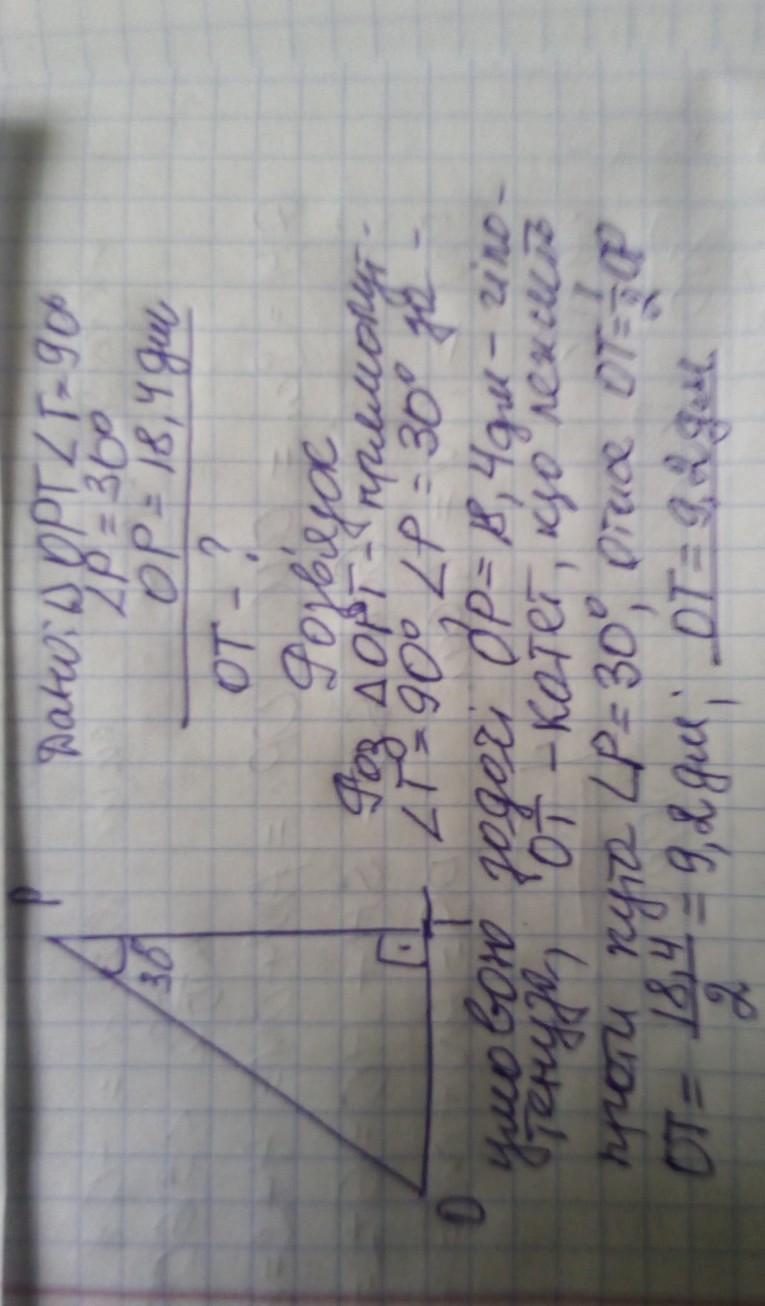 P
30
T
O
Дано: △OPT ∠T=90°
∠P = 30°
OP = 18,4 дм
OT - ?
Розв'язок
△OPT - прямокут-
∠T = 90° ∠P = 30° за
умовою задачі OP = 18,4 дм - гіпо-
тенуза, OT - катет, що лежить
проти кута ∠P = 30°, отже OT = 1/2 OP
OT = 18,4/2 = 9,2 дм; OT = 9,2 дм